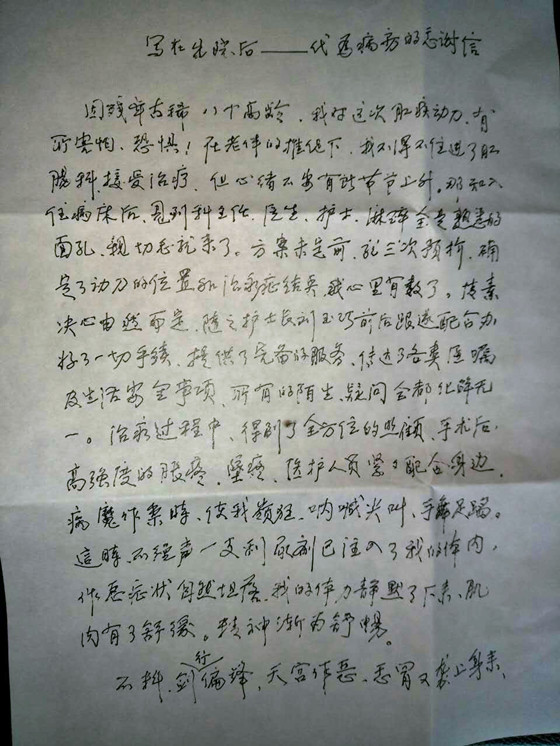 写在出院后——一代弯病房的感谢信
因残年古稀八十高龄，我对这次肛疾动刀，有
所害怕、恐惧！在老伴的推促下，我不得不住进了肛
肠科接受治疗，但心绪不安有所节节上升。那知入
住病床后，见到科主任、医生、护士、全是熟悉的
面孔，亲切无比来了。方案未定前，就三次预折，确
定了动刀的位置和治疗症结类，我心里有数了。
决心由然而定，随之护士长刘玉巧前后跟逐配合办
好了一切手续，提供了完备的服务，传达了各类医嘱
及生活安全事项，所有的陌生、疑问全都化解无
一。治疗过程中、得到了全方位的照顾，手术后，
高强度的胀疼、坠疼，医护人员紧力配合身边，
病魔作祟時，使我癫狂、呐喊尖叫、手舞足蹈。
這時，不经声一支利尿剂已注入了我的体内，
作恶症状自然坦落，我的体力静默了下来，肌
肉有了舒缓。精神渐为舒畅。
不料，剑行偏锋，天宫作恶，感冒又袭上身来，